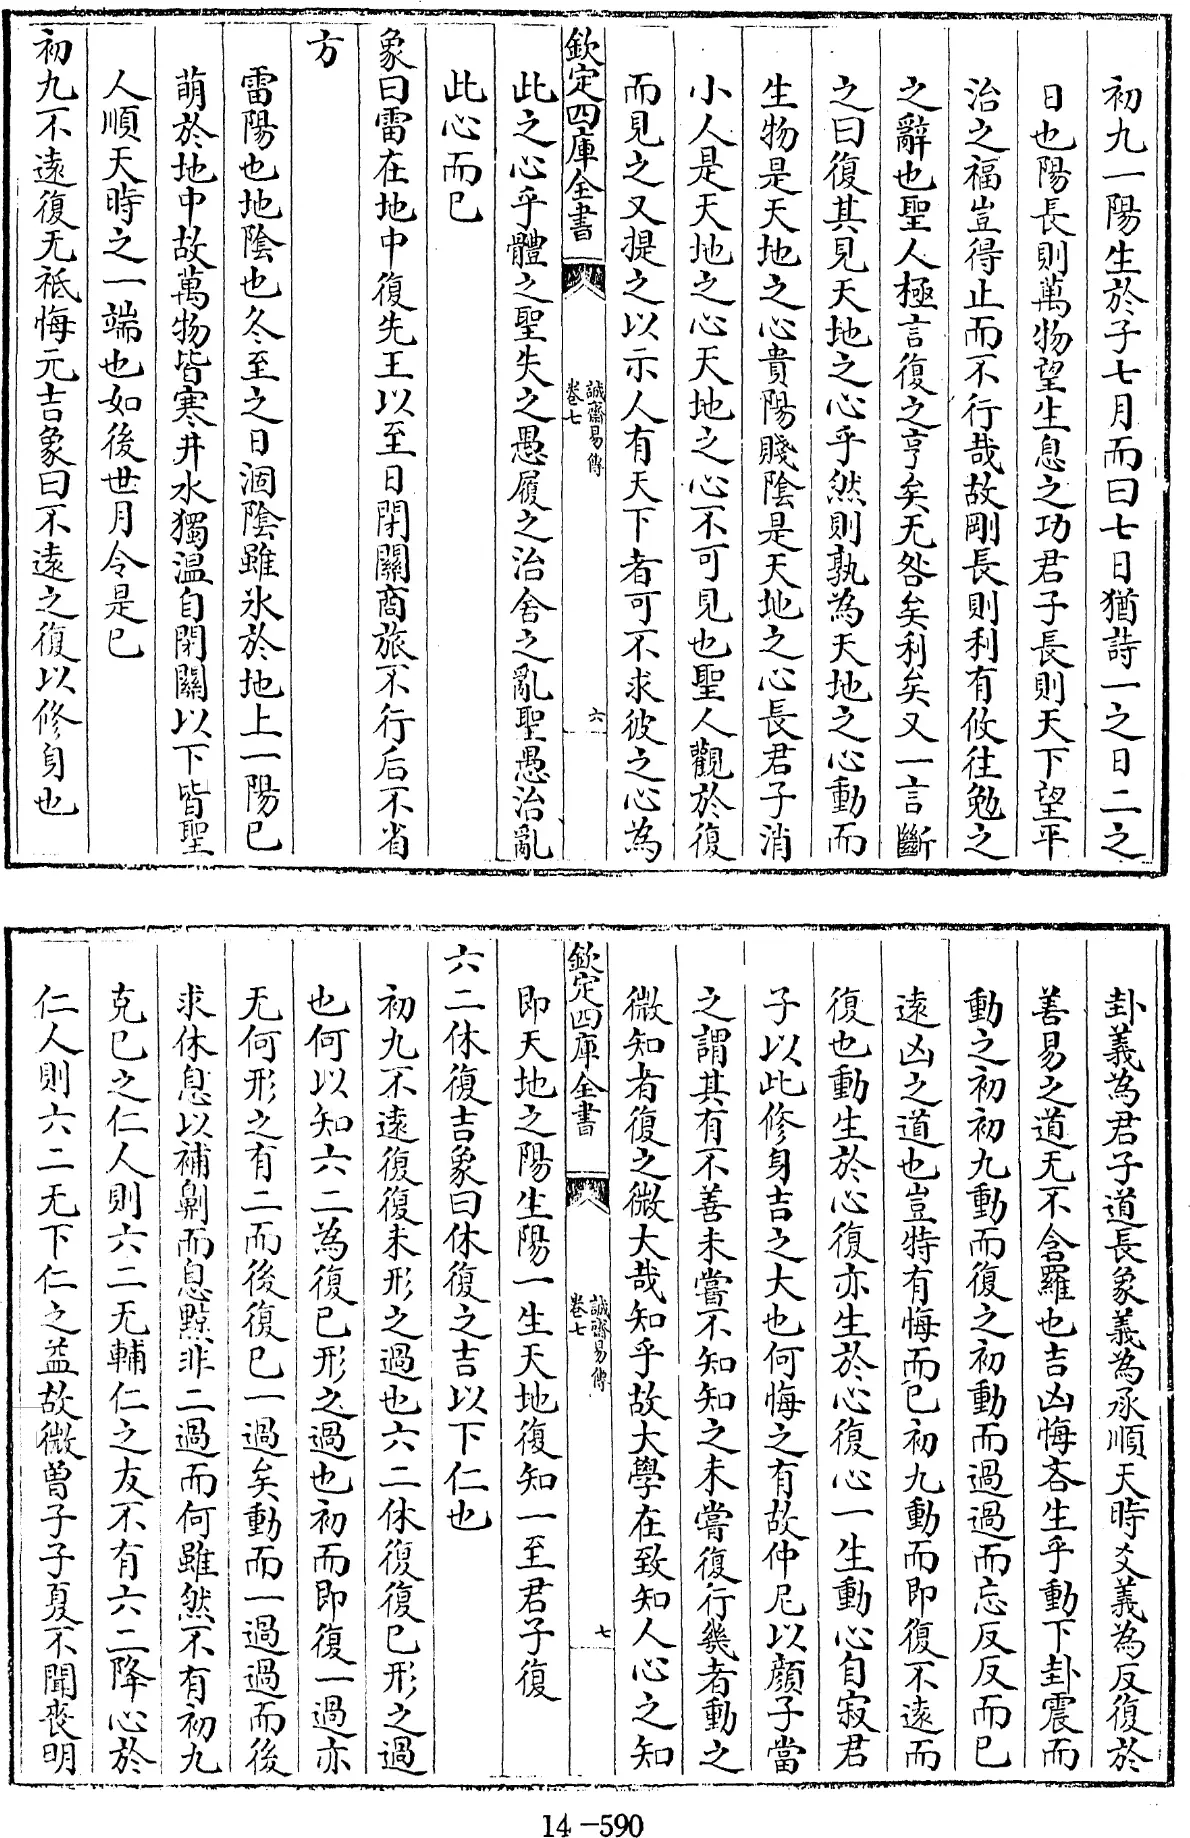 初九一陽生於子七月而曰七日猶詩一之日二之
日也陽長則萬物望生息之功君子長則天下望平
治之福豈得止而不行哉故剛長則利有攸往勉之
之辭也聖人極言復之亨矣无咎矣利矣又一言斷
之曰復其見天地之心乎然則孰為天地之心動而
生物是天地之心貴陽賤陰是天地之心長君子消
小人是天地之心天地之心不可見也聖人觀於復
而見之又提之以示人有天下者可不求彼之心為
欽定四庫全書
誠齋易傳
卷七
六
此之心乎體之聖失之愚履之治舍之亂聖愚治亂
此心而已
象曰雷在地中復先王以至日閉關商旅不行后不省
方
雷陽也地陰也冬至之日涸陰雖氷於地上一陽已
萌於地中故萬物皆寒井水獨温自閉關以下皆聖
人順天時之一端也如後世月令是已
初九不遠復无袛悔元吉象曰不遠之復以修身也
卦義為君子道長象義為承順天時爻義為反復於
善易之道无不含羅也吉凶悔吝生乎動下卦震而
動之初初九動而復之初動而過過而忘反反而已
遠凶之道也豈特有悔而已初九動而即復不遠而
復也動生於心復亦生於心復心一生動心自寂君
子以此修身吉之大也何悔之有故仲尼以顔子當
之謂其有不善未嘗不知知之未嘗復行幾者動之
微知者復之微大哉知乎故大學在致知人心之知
欽定四庫全書
誠齋易傳
卷七
七
即天地之陽生陽一生天地復知一至君子復
六二休復吉象曰休復之吉以下仁也
初九不遠復復未形之過也六二休復復已形之過
也何以知六二為復已形之過也初而即復一過亦
无何形之有二而後復已一過矣動而一過過而後
求休息以補劓而息黥非二過而何雖然不有初九
克己之仁人則六二无輔仁之友不有六二降心於
仁人則六二无下仁之益故微曽子子夏不聞喪明
14-590